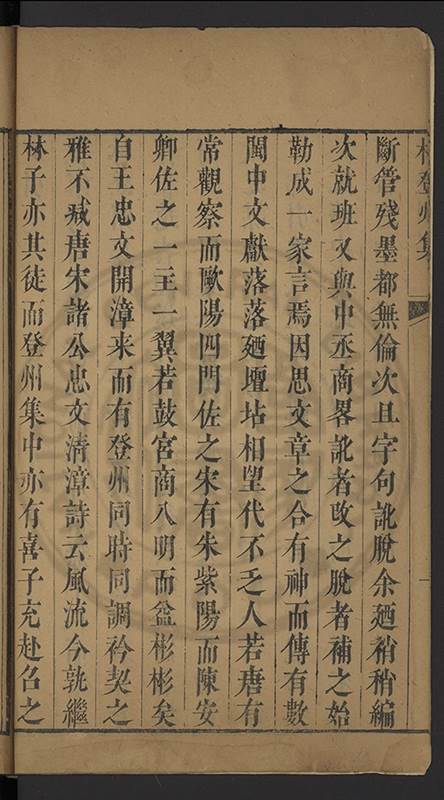 林登州集
斷管殘墨都無倫次且字句訛脫余廼稍稍編
次就班又與中丞商畧訛者改之脫者補之始
勒成一家言焉因思文章之合有神而傳有數
閩中文獻落落廼壇坫相望代不乏人若唐有
常觀察而歐陽四門佐之宋有朱紫陽而陳安
卿佐之一主一翼若鼓宮商八明而益彬彬矣
自王忠文開漳来而有登州同時同調衿契之
雅不減唐宋諸公忠文清漳詩云風流今孰繼
林子亦其徒而登州集中亦有喜子充赴召之